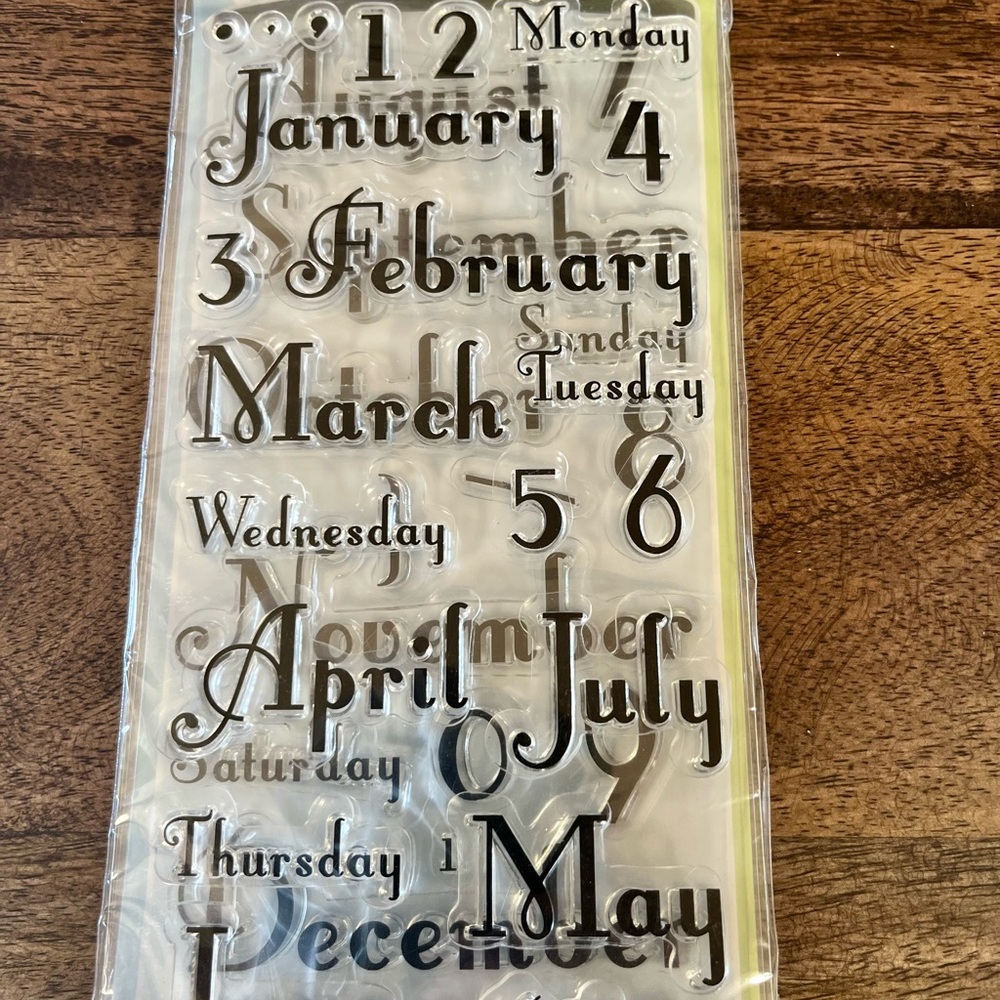 • , , 1 2 Monday
August 7
January 4
September
3 February
Sunday
March Tuesday
October 8
5 6
Wednesday
November
April July
Saturday 0 9
Thursday 1 May
December